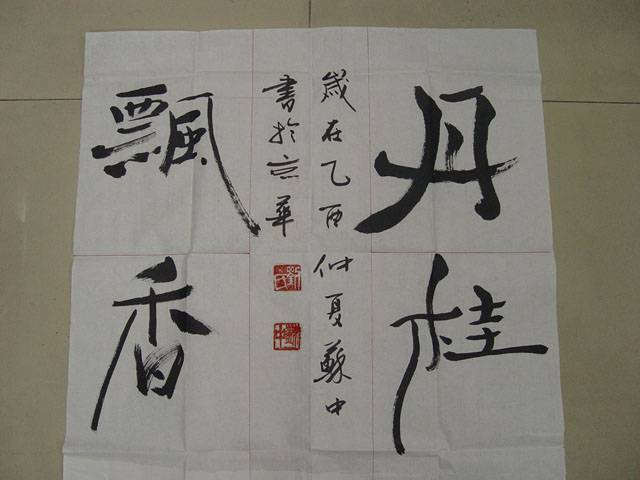 丹桂
歲在乙酉仲夏蘇中
書於京華
飄香